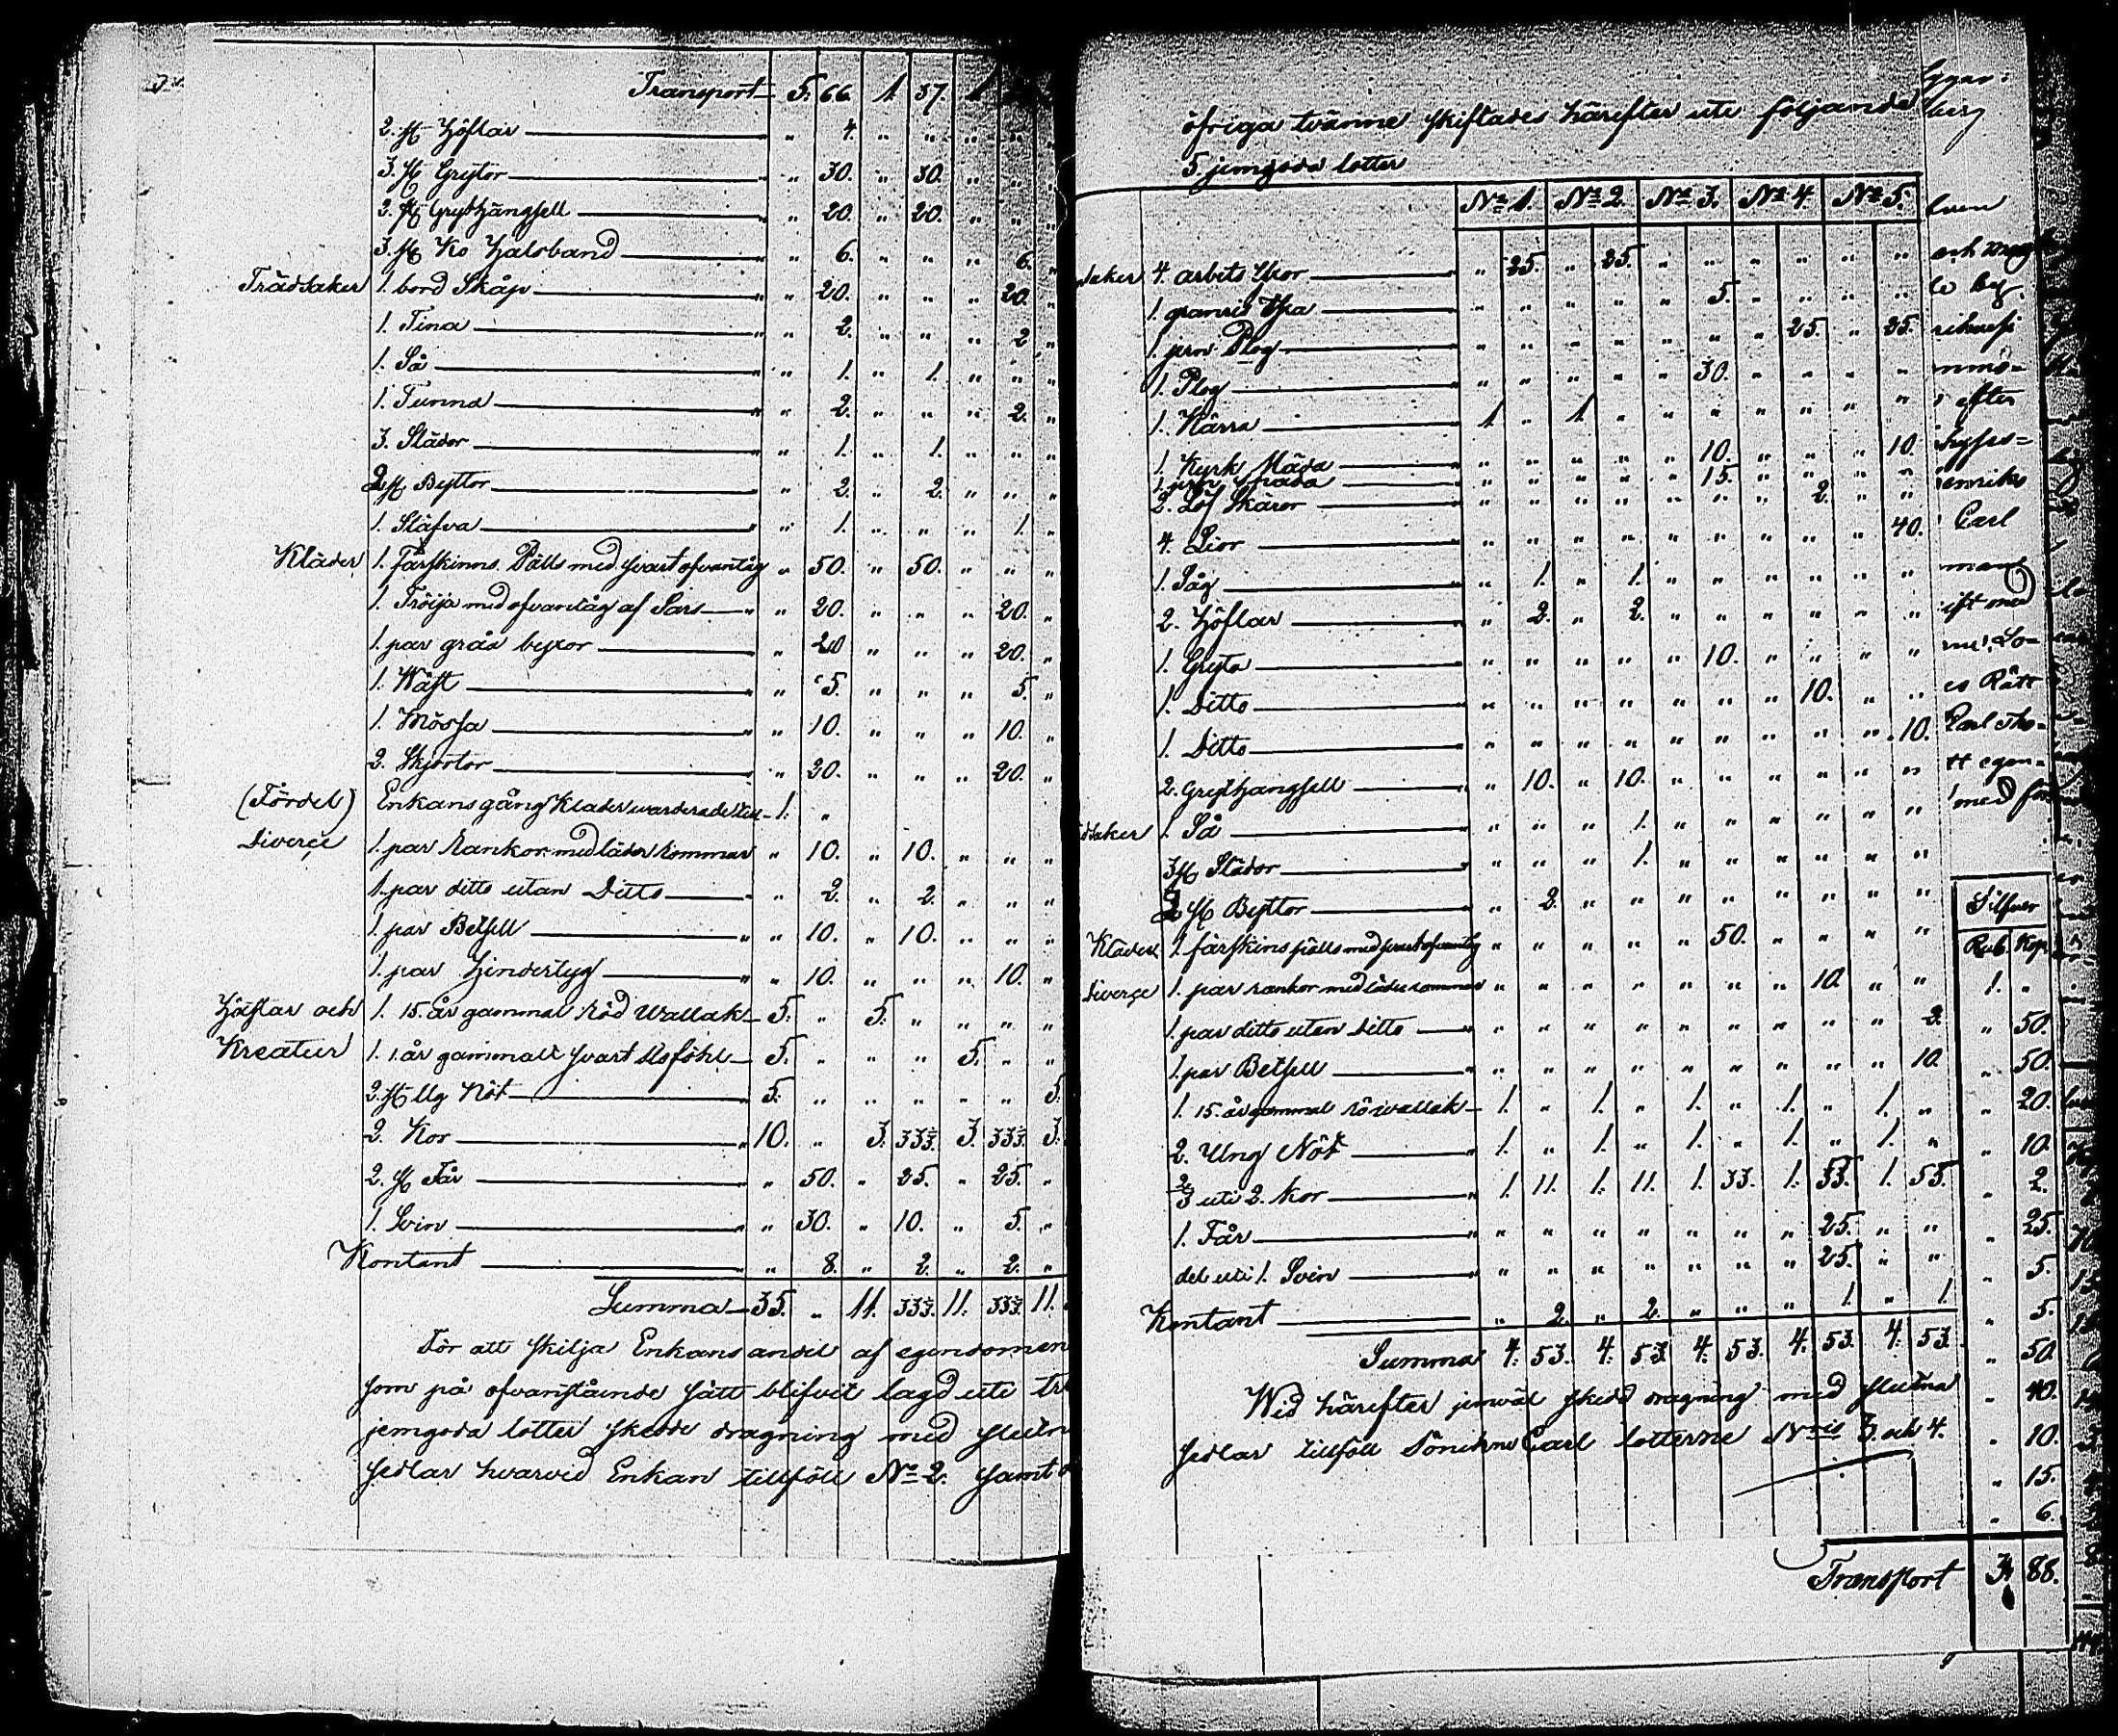 Transport 5. 66. 1. 37. 1
2. st Höflar " 4. " " " "
3. st Grytor " 30. " 30. " "
2. st Grythängsell " 20. " 20. " "
3. st Ko Halsband " 6. " " " 6. "
Trädsaker 1. bord Skåp " 20. " " " 20. "
1. Tina " 2. " " " 2. "
1. Så " 1. " 1. " " "
1. Tunna " 2. " " " 2. "
3. Städor " 1. " 1. " " "
2 st Byttor " 2. " 2. " " "
1. Släfva " 1. " " " 1. "
Kläder 1. Fårskinns Pälls med svart ofvantåg " 50. " 50. " " "
1. Tröija med ofvantåg af Sars " 20. " " " 20. "
1. par gråa byxor " 20 " " " 20. "
1. Wäst " 5. " " " 5. "
1. Mössa " 10. " " " 10. "
2. Skjortor " 20. " " " 20. "
(Fördel) Enkans gång Kläder warderade till 1. "
Diverçe 1. par Rankor med läder kommar " 10. " 10. " " "
1. par ditto utan Ditto " 2. " 2. " " "
1. par Betsell " 10. " 10. " " "
1. par Hindertyg " 10. " " " 10. "
Hästar och 1. 15. år gammal Röd Wallak 5. " 5. " " " "
Kreatur 1. 1. år gammalt svart Stoföhl 5. " " " 5. " "
2. st Ug Nöt 5. " " " " " 5.
2. Kor 10. " 3. 33⅓. 3. 33⅓. 3.
2. st Får " 50. " 25. " 25. "
1. Svin " 30. " 10. " 5. "
Kontant " 8. " 2. " 2. "
Summa 35. " 11. 33⅓. 11. 33⅓. 11.
För att skilja Enkans andel af egendomen
som på ofvanstående sätt blifvit lagd uti
jemgoda lotter skedde dragning med slutn
sedlar hvarvid Enkan tillföll No 2. samt
öfriga tvänne skiftades härefter uti följande
5 jemgoda lotter
No 1. No 2. No 3. No 4 No 5.
saker 4. arbets Yxor " 25. " 25. " " " " " "
1. granris Yxa " " " " " 5. " " " "
1. jern Plog " " " " " " " 25. " 25.
1. Plog " " " " " 30. " " " "
1. Kärra 1. " 1. " " " " " " "
1. Kyrk Släda " " " " " 10. " " " 10.
1. jern " " " " " 15. " " " "
2. Löf Skäror " " " " " " " 2. " "
4. Lior " " " " " " " " " 40.
1. Såg " 1. " 1. " " " " " "
2. Höflar " 2. " 2. " " " " " "
1. Gryta " " " " " 10. " " " "
1. Ditto " " " " " " " 10. " "
1. Ditto " " " " " " " " " 10.
2. Grythängsell " 10. " 10. " " " " " "
dsaker 1. Så " " " 1. " " " " " "
3 st Städor " " " 1. " " " " " "
2 st Byttor " 2. " " " " " " " "
Kläder 1. fårskins pälls med svart ofvantåg " " " " " 50. " " " "
Diverçe 1. par rankor med läder kommar " " " " " " " 10. " "
1. par ditto utan Ditto " " " " " " " " " 2.
1. par Betsell " " " " " " " " " 10.
1. 15. år gammal röd wallak 1. " 1. " 1. " 1. " 1. "
2. Ung Nöt 1. " 1. " 1. " 1. " 1. "
⅔ uti 2. Kor 1. 11. 1. 11. 1. 33. 1. 53. 1. 55.
1. Får " " " " " " " 25. " "
del uti 1. Svin " " " " " " " 25. " "
Kontant " 2. " 2. " " " 1. " 1.
Summa 4. 53. 4. 53 4. 53. 4. 53. 4. 53.
Wid härefter jemväl skedd dragning med slutna
sedlar tillföll Sönerne Carl lotterne Nris 3. och 4.
berg
och
efter
Carl
Silfver
Rub. Kop.
1. "
" 50.
" 50.
" 20.
" 10.
" 2.
" 25.
" 5.
" 5.
" 50.
" 40.
" 10.
" 15.
" 6.
Transport 3. 88.